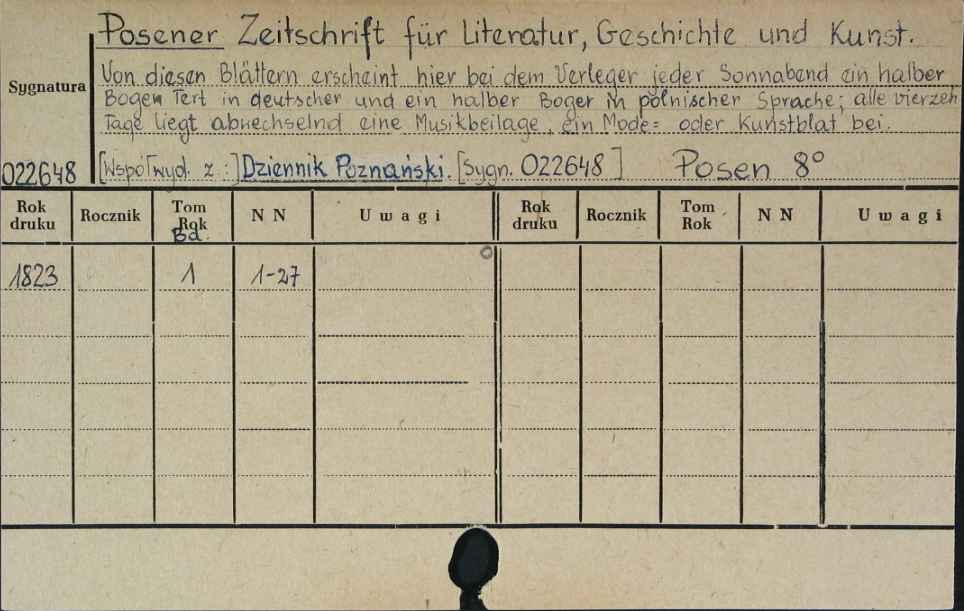 Posener Zeitschrift für Literatur, Geschichte und Kunst.
Sygnatura
Von diesen Blättern erscheint hier bei dem Verleger jeder Sonnabend ein halber
Bogen Tert in deutscher und ein halber Boger in polnischer Sprache; alle vierzeh
Tage liegt abwechselnd eine Musikbeilage, ein Mode= oder Kunstblat bei.
022648 [Współwyd. z :] Dziennik Poznański. [Sygn. 022648] Posen 8°
Rok druku Rocznik Tom Rok Bd. N N Uwagi Rok druku Rocznik Tom Rok N N Uwagi
1823 1 1-27